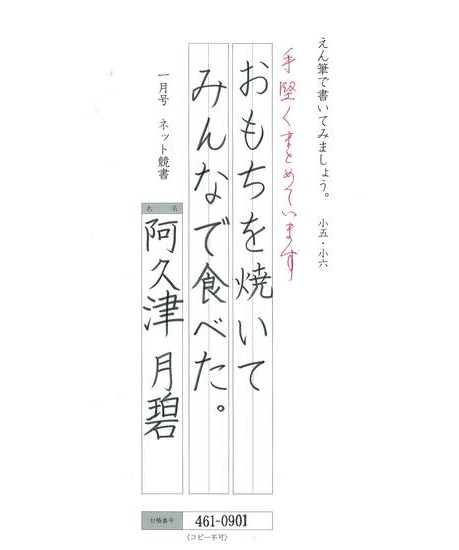 えん筆で書いてみましょう。 小五・小六
手堅くまとめています
おもちを焼いて
みんなで食べた。
一月号 ネット競書
氏名
阿久津 月碧
台帳番号 461-0901
(コピー不可)